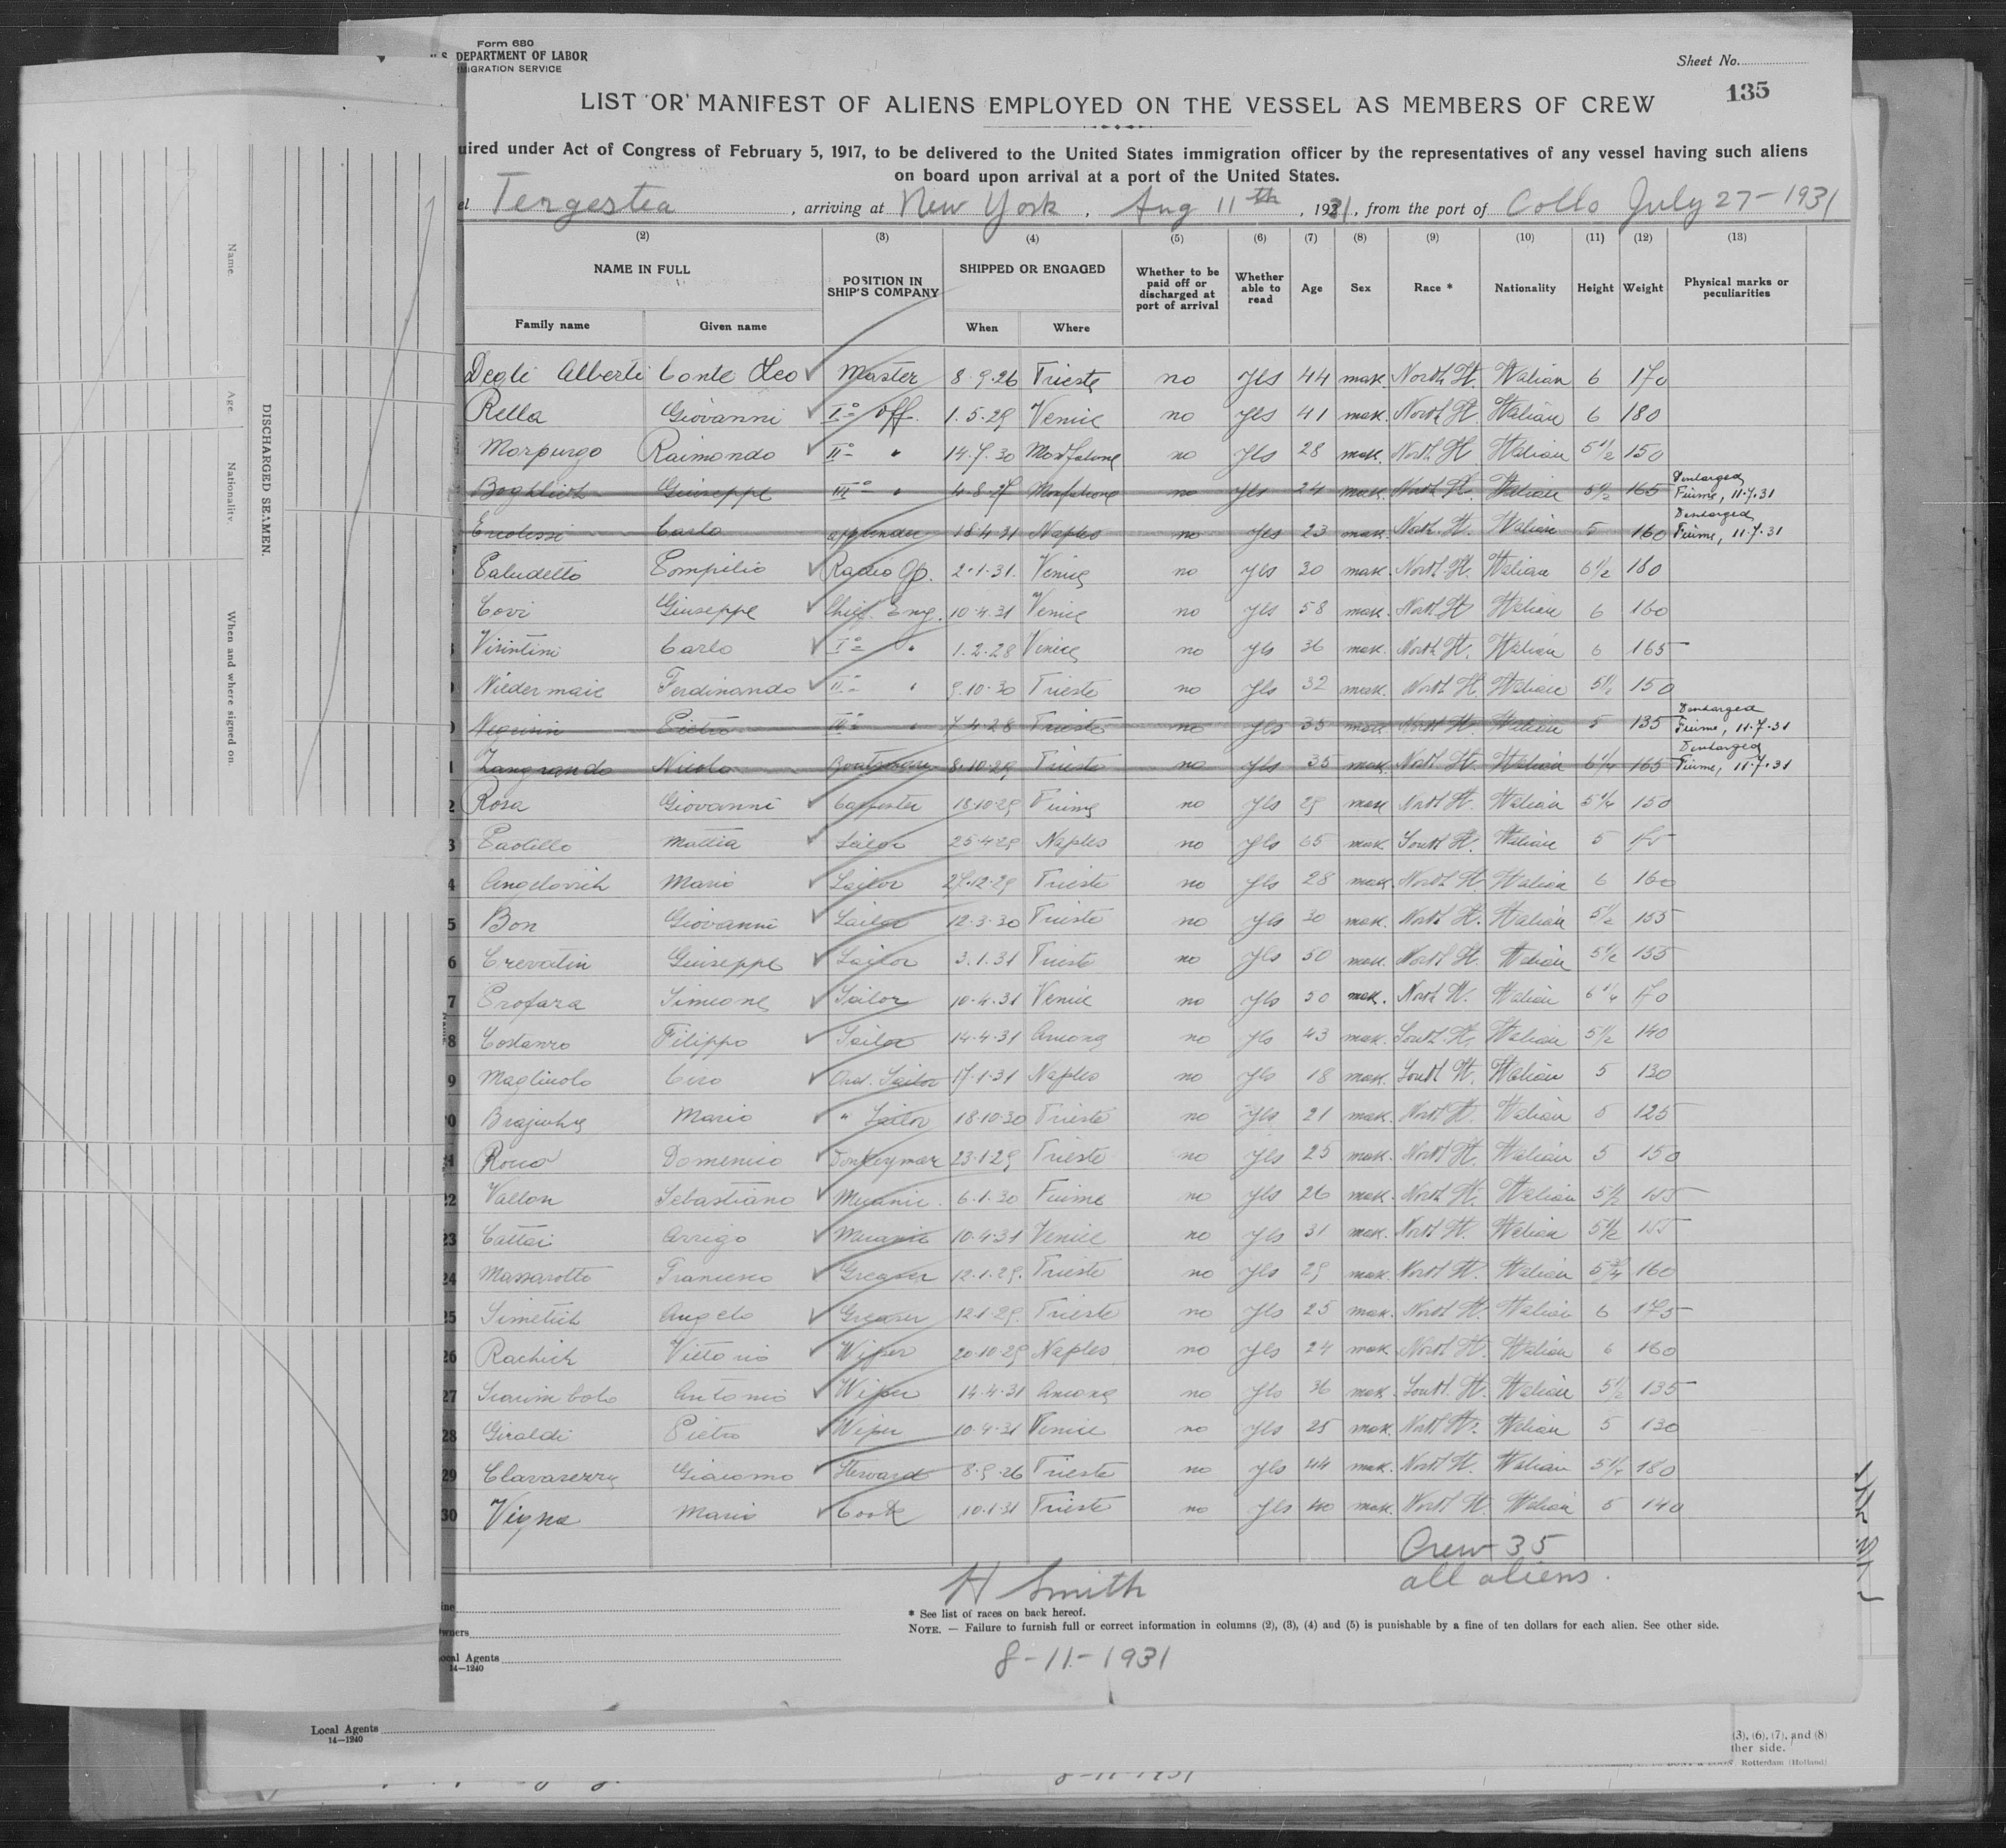 Form 680
U.S. DEPARTMENT OF LABOR
MIGRATION SERVICE
Sheet No.
135
LIST OR MANIFEST OF ALIENS EMPLOYED ON THE VESSEL AS MEMBERS OF CREW
uired under Act of Congress of February 5, 1917, to be delivered to the United States immigration officer by the representatives of any vessel having such aliens
on board upon arrival at a port of the United States.
el Tergestea, arriving at New York, Aug 11th, 1931, from the port of Collo July 27-1931
(2) (3) (4) (5) (6) (7) (8) (9) (10) (11) (12) (13)
NAME IN FULL POSITION IN SHIP'S COMPANY SHIPPED OR ENGAGED Whether to be paid off or discharged at port of arrival Whether able to read Age Sex Race * Nationality Height Weight Physical marks or peculiarities
Family name Given name When Where
Degli Alberti Conte Leo Master 8.9.26 Trieste no yes 44 male North It. Italian 6 170
Rella Giovanni I° off. 1.5.29 Venice no yes 41 male North It. Italian 6 180
Morpurgo Raimondo II° " 14.7.30 Monfalcone no yes 28 male North It Italian 5 1/2 150
Giuseppe III° " 4.8.27 Monfalcone no yes 24 male North It. Italian 5 1/2 165 Fiume, 11.7.31
Carlo 18.4.31 Naples no yes 23 male North It. Italian 5 160 Fiume, 11.7.31
Paludetto Pompilio Radio Op. 2.1.31. Venice no yes 30 male North It. Italian 6 1/2 180
Covi Giuseppe Chief Eng. 10.4.31 Venice no yes 58 male North It Italian 6 160
8 Visintini Carlo I° " 1.2.28 Venice no yes 36 male North It. Italian 6 165
9 Niedermaie Ferdinando II° " 9.10.30 Trieste no yes 32 male North It. Italian 5 1/2 150
0 Pietro III° " 7.4.28 Trieste no yes 35 male North It. Italian 5 135 Fiume, 11.7.31
1 Zangrando Nicolo 8.10.29 Trieste no yes 35 male North It. Italian 6 1/4 165 Fiume, 11.7.31
2 Rosa Giovanni Carpenter 18.10.29 Fiume no yes 29 male North It. Italian 5 1/4 150
3 Mattia Sailor 25.4.29 Naples no yes 65 male South It. Italian 5
4 Angelovich Mario Sailor 27.12.29 Trieste no yes 28 male North It. Italian 6 160
5 Bon Giovanni Sailor 12.3.30 Trieste no yes 30 male North It. Italian 5 1/2 155
6 Crevatin Giuseppe Sailor 3.1.31 Trieste no yes 50 male North It. Italian 5 1/2 155
7 Simeone Sailor 10.4.31 Venice no yes 50 male North It. Italian 6 1/4 170
8 Costanzo Filippo Sailor 14.4.31 no yes 43 male South It. Italian 5 1/2 140
9 Magliuolo Ciro Ord. Sailor 17.1.31 Naples no yes 18 male South It. Italian 5 130
0 Mario " Sailor 18.10.30 Trieste no yes 21 male North It. Italian 5 125
Rocco Domenico Donkeyman 23.1.29 Trieste no yes 25 male North It. Italian 5 150
22 Vallon Sebastiano Mecanic. 6.1.30 Fiume no yes 26 male North It. Italian 5 1/2 155
23 Cattai Arrigo Mecanic 10.4.31 Venice no yes 31 male North It. Italian 5 1/2 155
24 Massarotto Francesco Greaser 12.1.29. Trieste no yes 29 male North It. Italian 5 3/4 160
25 Simetich Angelo Greaser 12.1.29. Trieste no yes 25 male North It. Italian 6 175
26 Rachich Vittorio Wiper 20.10.29 Naples no yes 24 male North It. Italian 6 160
27 Antonio Wiper 14.4.31 no yes 36 male South It. Italian 5 1/2 135
28 Giraldi Pietro Wiper 10.4.31 Venice no yes 25 male North It. Italian 5 130
29 Giacomo Steward 8.9.26 Trieste no yes 44 male North It. Italian 180
30 Vigna Mario Cook 10.1.31 Trieste no yes 40 male North It. Italian 5 140
Crew 35
all aliens.
H Smith
* See list of races on back hereof.
NOTE. — Failure to furnish full or correct information in columns (2), (3), (4) and (5) is punishable by a fine of ten dollars for each alien. See other side.
8-11-1931
wners
ocal Agents
14—1240
Local Agents
14—1240
(3), (6), (7), and (8)
ther side.
Rotterdam (Holland)
8-11-1931
DISCHARGED SEAMEN.
Name.
Age.
Nationality.
When and where signed on.